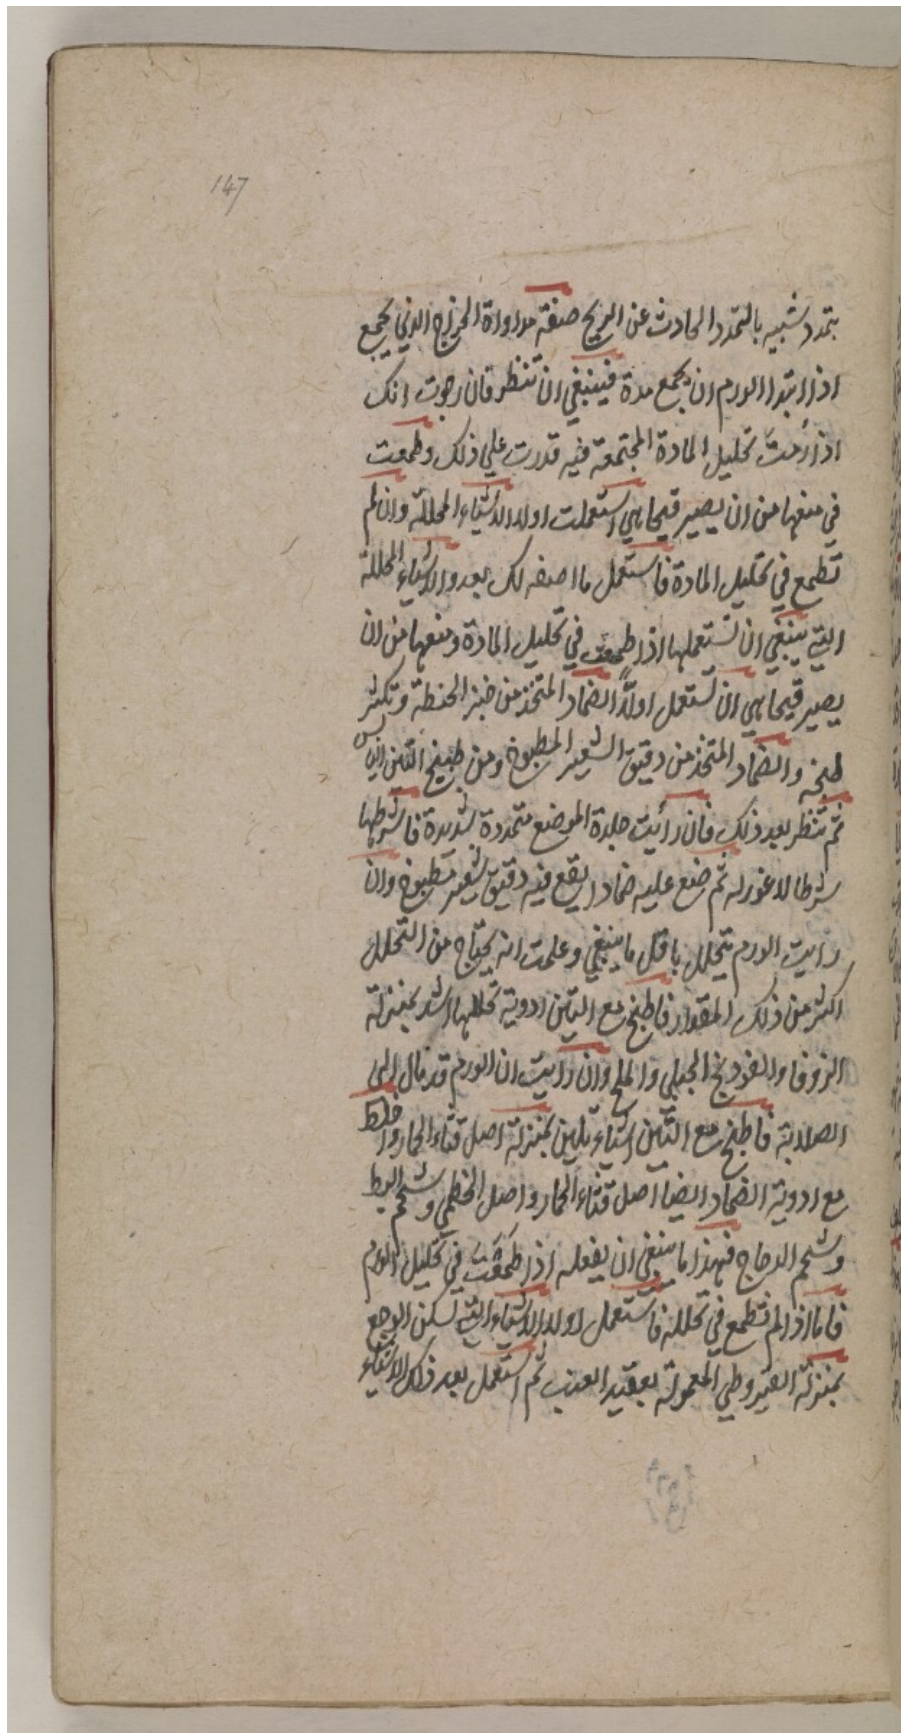 147
بتمدد شبيه بالتمدد الحادث عن الريح صفة مداواة الخراج الذي يجمع
اذا ابتدا الورم ان يجمع مدة فينبغي ان تنظر فان رجوت انك
اذا رمت تحليل المادة المجتمعة فيه قدرت علي ذلك وطمعت
في منعها من ان يصير قيحا هي استعملت اولا الاشياء المحللة وان لم
تطمع في تحليل المادة فاستعمل ما اصفه لك بعد والاشياء المحللة
التي ينبغي ان تستعملها اذا طمعت في تحليل المادة ومنعها من ان
يصير قيحا هي ان تستعمل اولاً الضماد المتخذ من خبز الحنطة وتكثر
طبخه والضماد المتخذ من دقيق الشعير المطبوخ ومن طبيخ التين اليابس
ثم تنظر بعد ذلك فان رأيت جلدة الموضع متمددة شديدة فاشرطها
شرطا لا غور له ثم ضع عليه ضمادا يقع فيه دقيق شعير مطبوخ وان
رايت الورم يتحلل باقل ما ينبغي وعلمت انه يحتاج من التحلل
اكثر من ذلك المقدار فاطبخ مع التين ادوية تحللها اشد بمنزلة
الزوفا والفوديخ الجبلي والملح وان رايت ان الورم قد مال الى
الصلابة فاطبخ مع التين اشياء تلين بمنزلة اصل قثاء الحمار واخلط
مع ادوية الضماد ايضا اصل قثاء الحمار واصل الخطمي وشحم البط
وشحم الدجاج فهذا ما ينبغي ان يفعله اذا طمعت في تحليل الورم
فاما اذا لم تطمع في تحلله فاستعمل اولا الاشياء التي تسكن الوجع
بمنزلة القيروطي المعمولة بعقيد العنب ثم استعمل بعد ذلك الاشياء